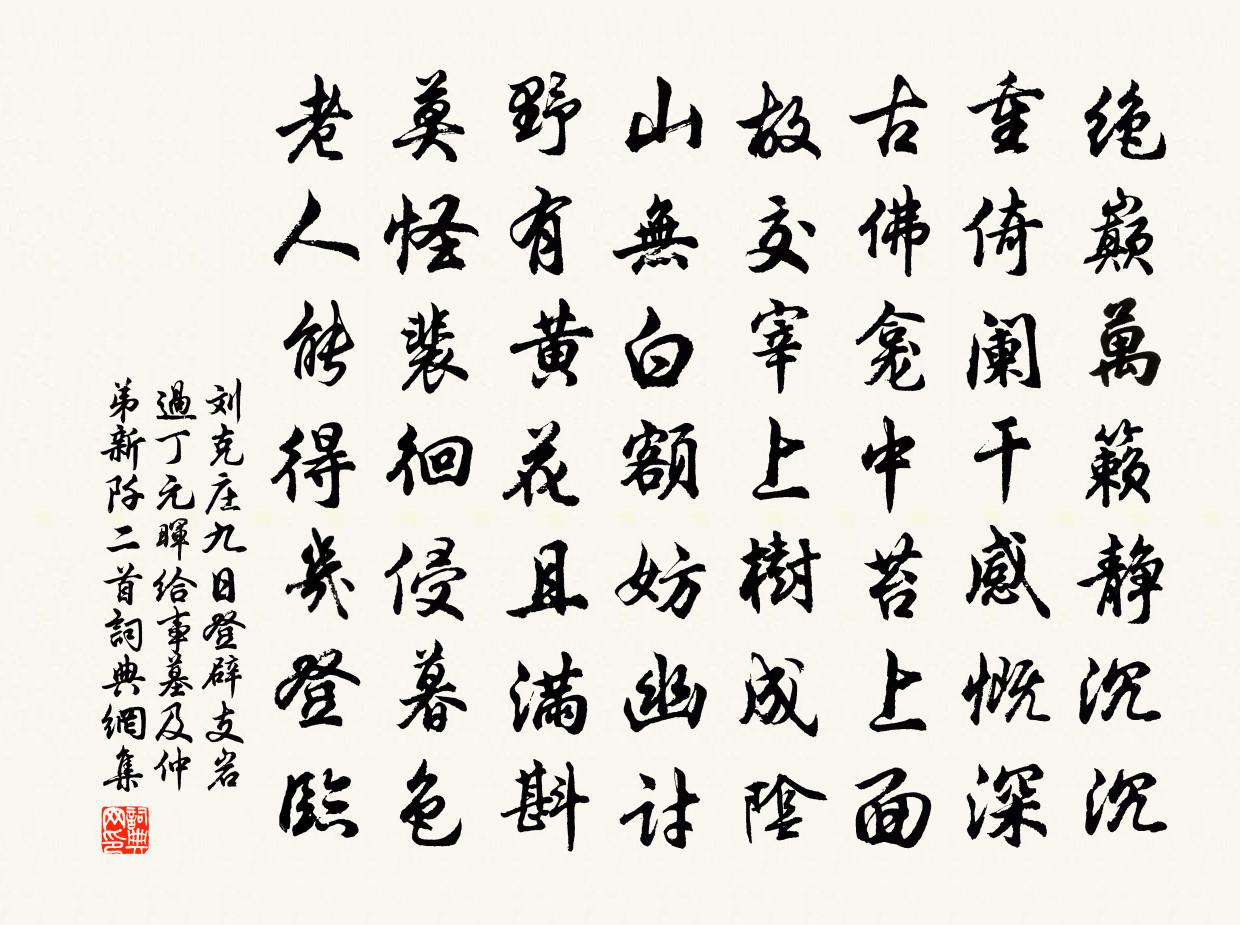 绝巅萬籁静沉沉
重倚阑干感慨深
古佛龛中苔上面
故交宰上樹成陰
山無白額妨幽討
野有黄花且满斟
莫怪裴徊侵暮色
老人能得幾登臨
刘克庄九日登辟支岩
過丁元暉给事墓及仲
弟新阡二首詞典網集
詞典网印